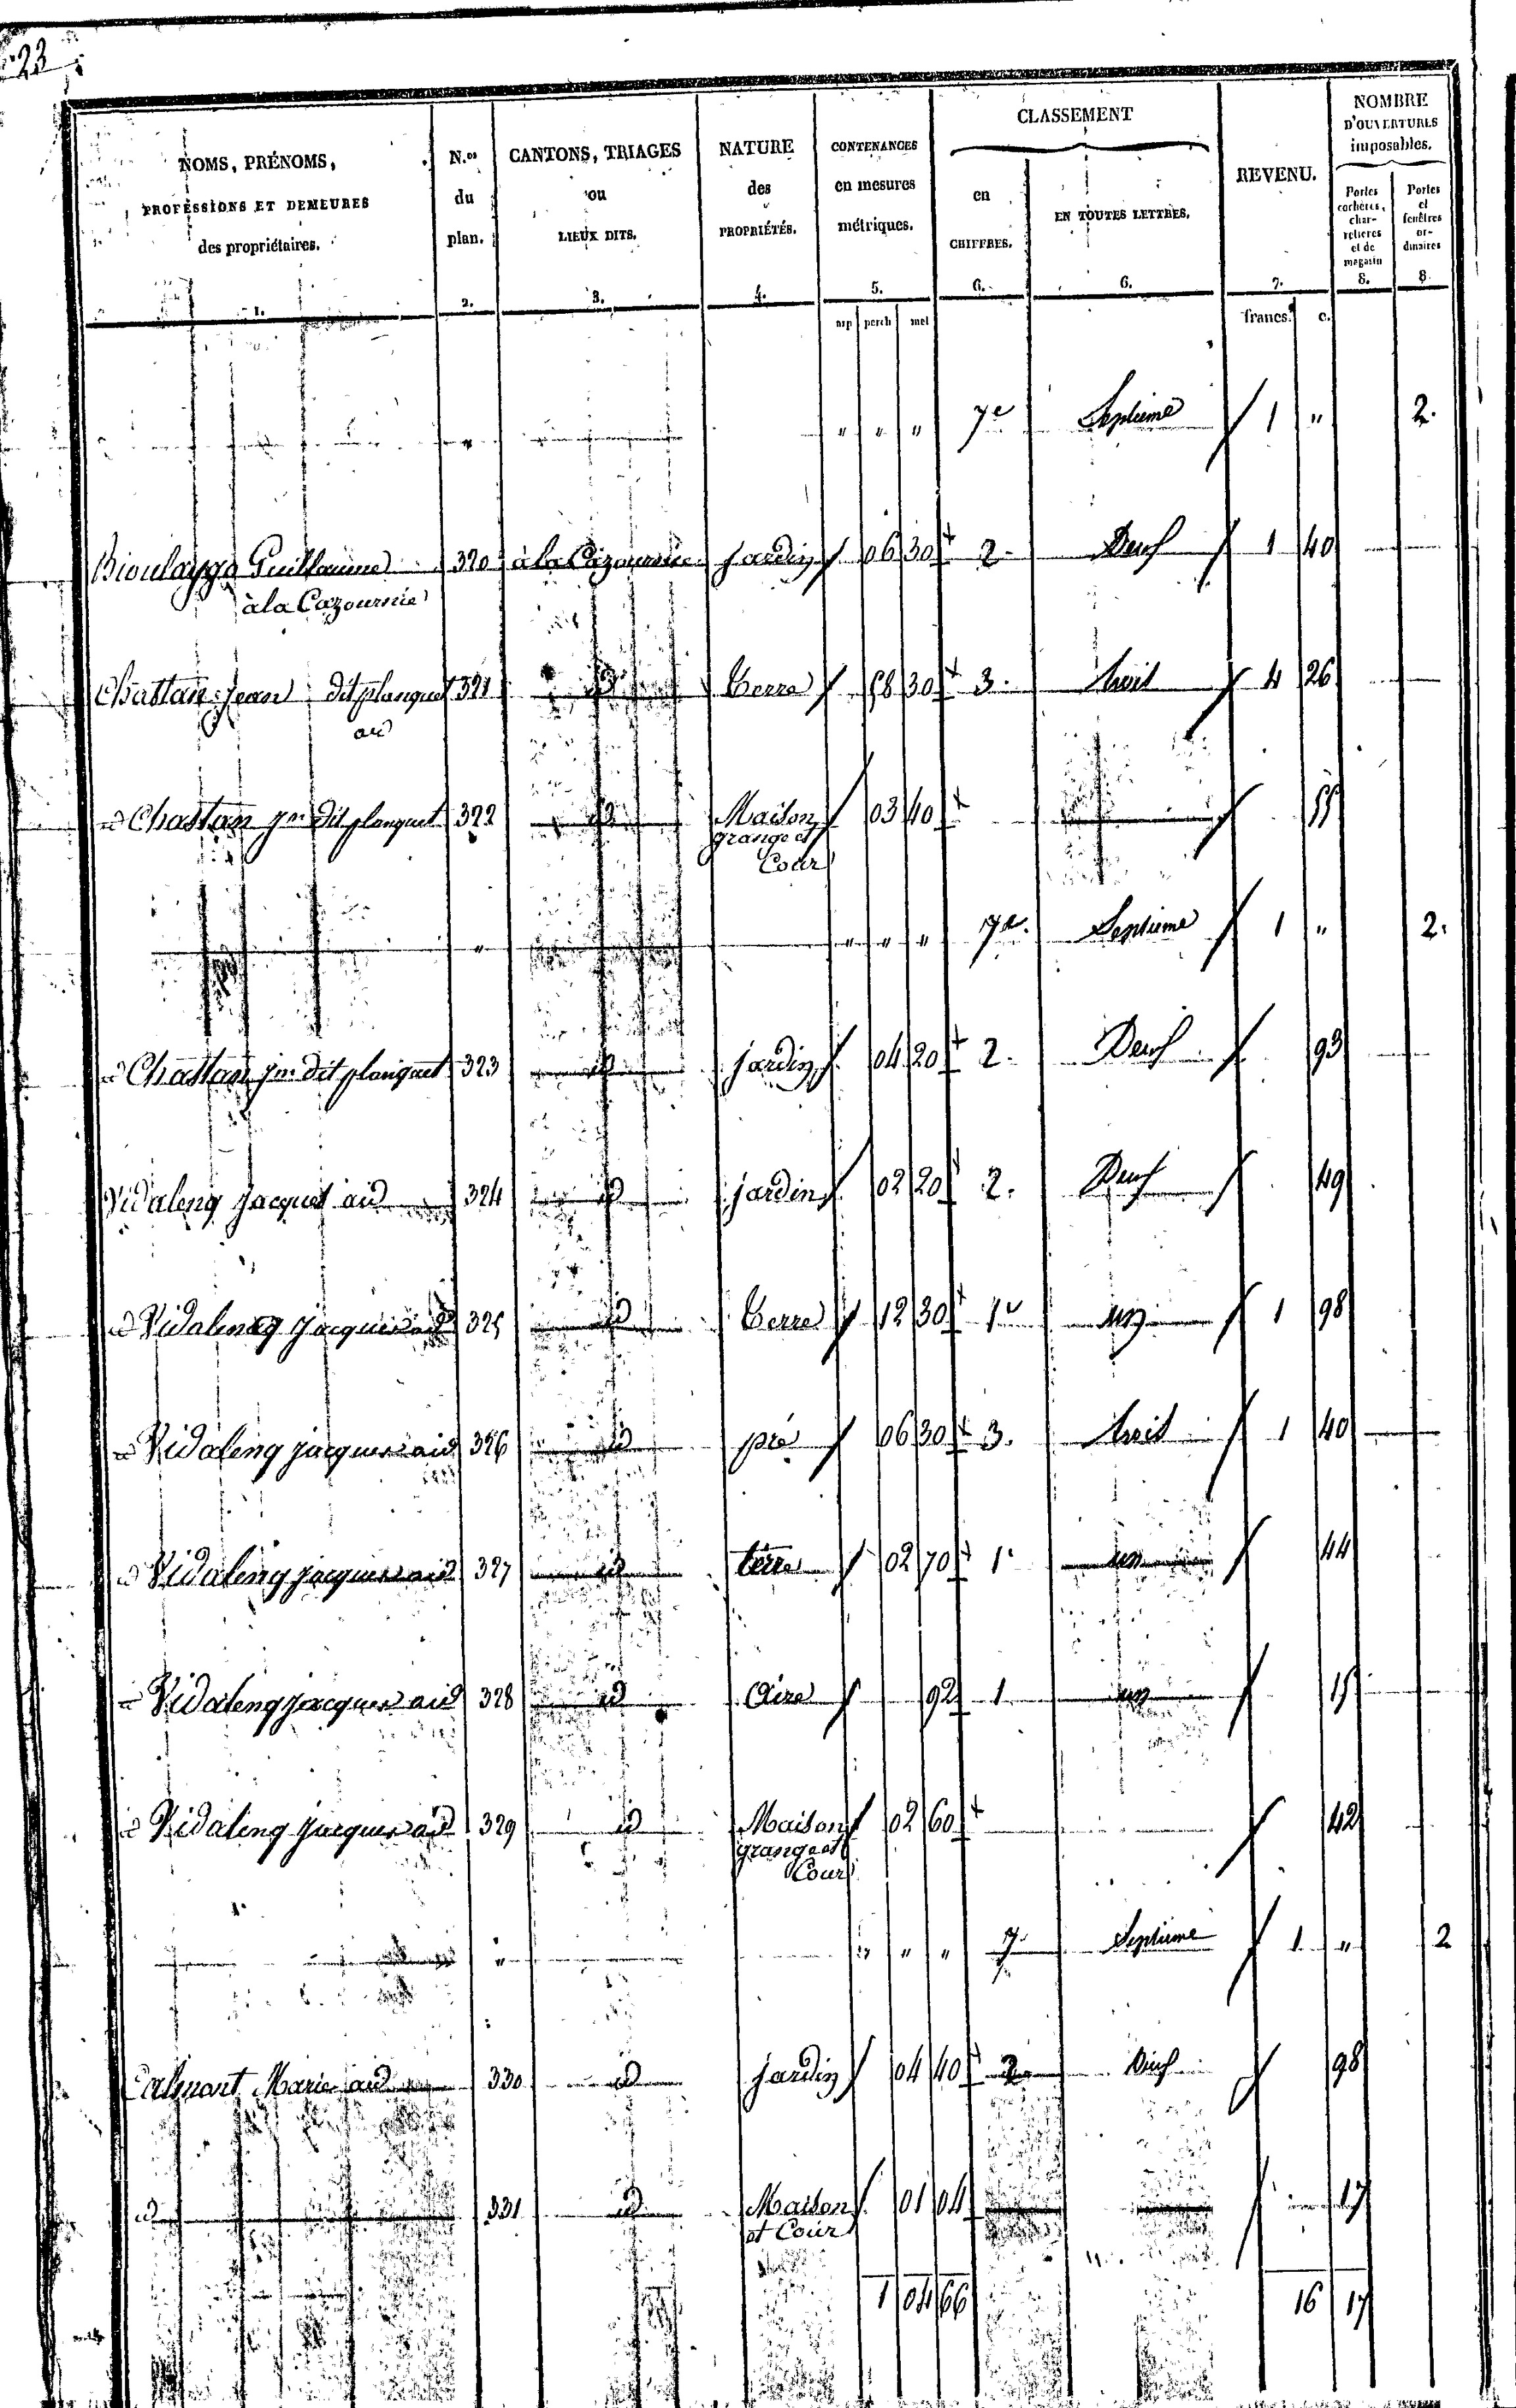 23
NOMS, PRÉNOMS,
PROFESSIONS ET DEMEURES
des propriétaires.
1.
N.os
du
plan.
2.
CANTONS, TRIAGES
ou
LIEUX DITS.
3.
NATURE
des
PROPRIÉTÉS.
4.
CONTENANCES
en mesures
métriques.
5.
CLASSEMENT
en
CHIFFRES.
6.
EN TOUTES LETTRES.
6.
REVENU.
7.
NOMBRE
D'OUVERTURES
imposables.
Portes
cochères,
char-
retières
et de
magasin
8.
Portes
et
fenêtres
or-
dinaires
8.
arp perch met
francs. c.
" " " " 7e Septième 1 " 2.
Bioulayga Guillaume 320 à la Cazournie Jardin 06 30 2 Deux 1 40
à la Cazournie
Chastan Jean dit planquet 321 id Terre 58 30 3. trois 4 26
aud
id Chastan jn dit planquet 322 id Maison 03 40 55
grange et
Cour
" " " " 7e. Septième 1 " 2.
id Chastan jn dit planquet 323 id jardin 04 20 2. Deux 93
Vidaleng Jacques aud 324 id jardin 02 20 2. Deux 49
id Vidaleng Jacques aud 325 id Terre 12 30 1e un 1 98
id Vidaleng jacques aud 326 id pré 06 30 3. trois 1 40
id Vidaleng jacques aud 327 id terre 02 70 1e un 44
id Vidaleng jacques aud 328 id Aire 92 1 un 15
id Vidaleng jacques aud 329 id Maison 02 60 42
grange et
Cour
" " " " 7. Septième 1 " 2
Marie aud 330 id jardin 04 40 2 Deux 98
id 331 id Maison 01 04 17
et Cour
1 04 66 16 17